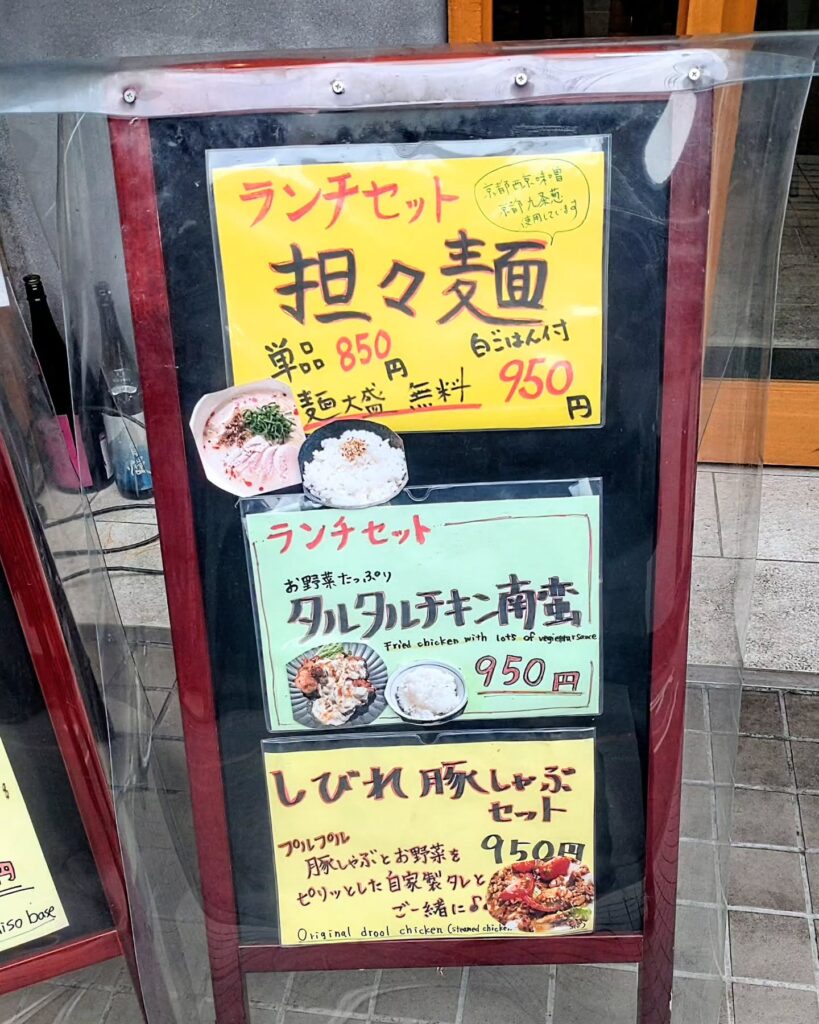 ランチセット
京都西京味噌
京都九条葱
使用しています
担々麺
単品 850円
白ごはん付
950円
麺大盛 無料
ランチセット
お野菜たっぷり
タルタルチキン南蛮
Fried chicken with lots of
950円
しびれ豚しゃぶ
セット
950円
プルプル
豚しゃぶとお野菜を
ピリッとした自家製タレと
ご一緒に♪
Original drool chicken (steamed chicken
円
iso base